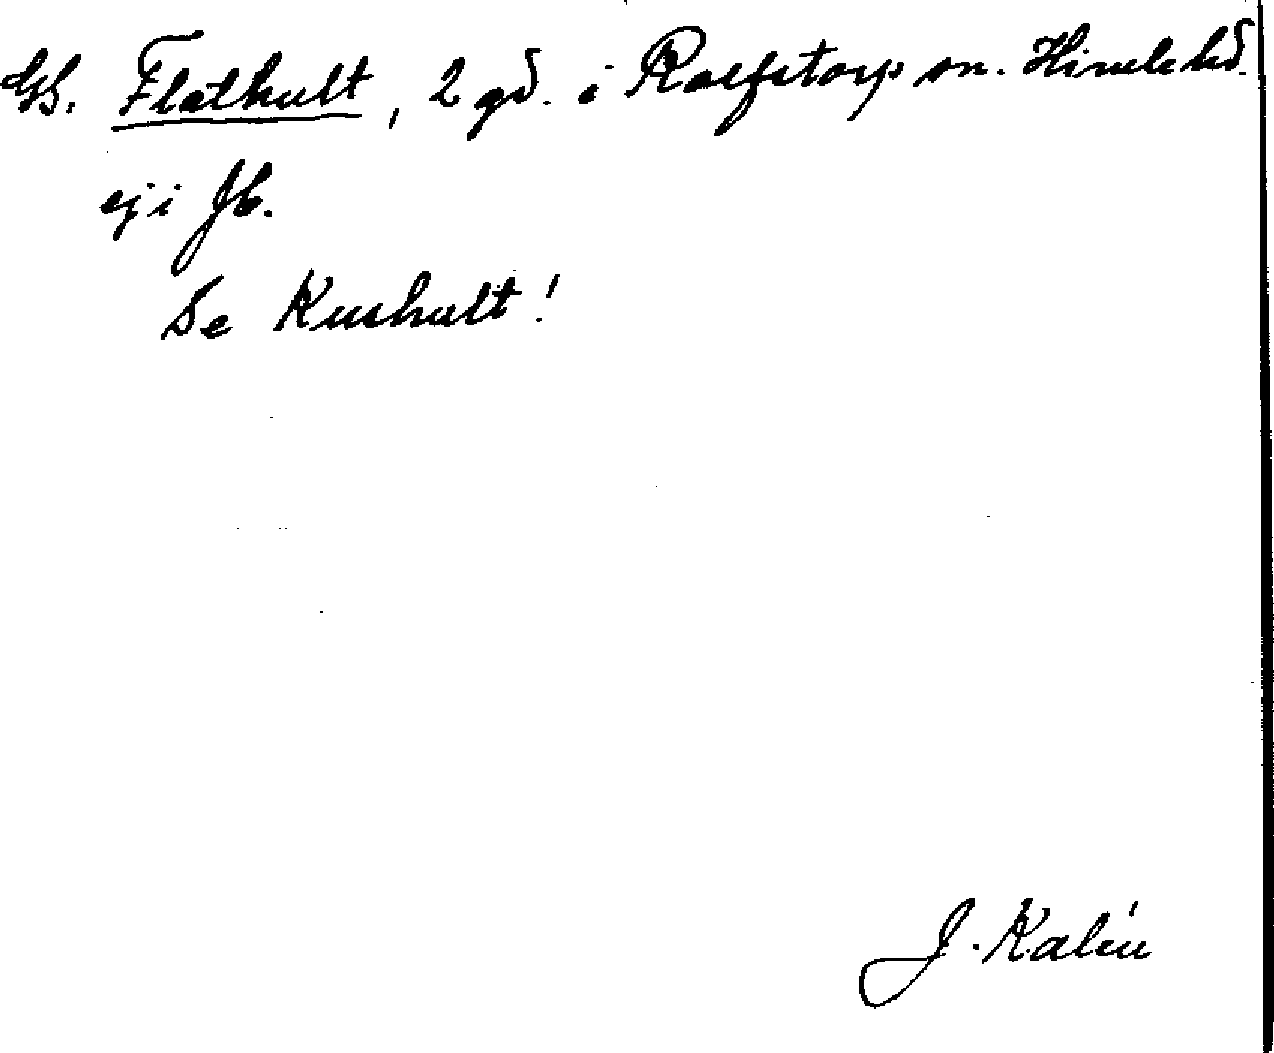 GS. Flathult, 2 gd. i Rolfstorp sn. Himle hd.
ej i Jb.
Se Kushult!
J. Kalén